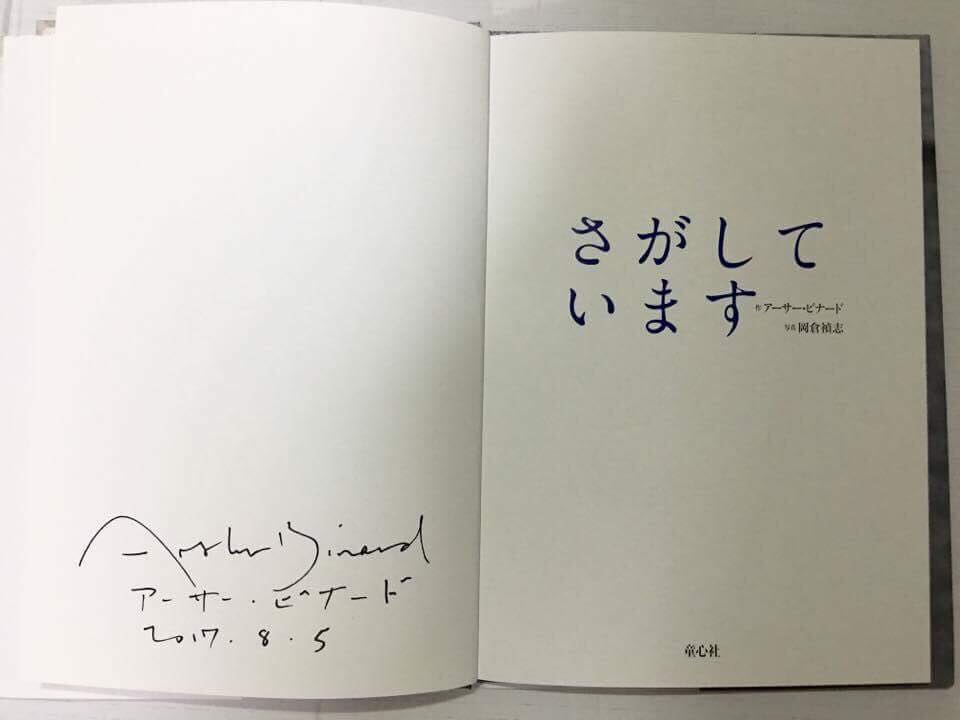 Arthur Binard
アーサー・ビナード
2017.8.5
さがして
います
作 アーサー・ビナード
写真 岡倉禎志
童心社